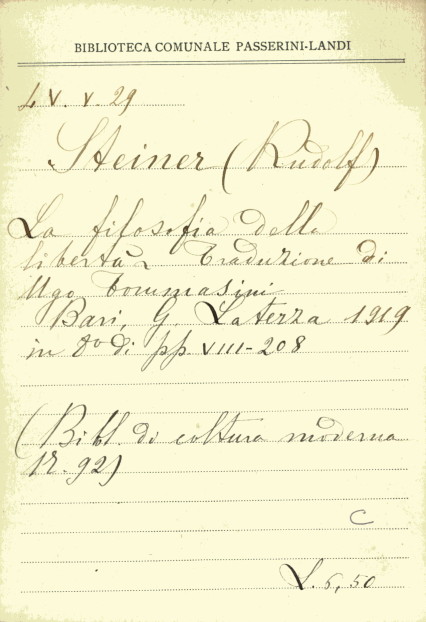 BIBLIOTECA COMUNALE PASSERINI-LANDI
L V. V. 29
Steiner (Rudolf)
La filosofia della
libertà Traduzione di
Ugo Tommasini
Bari, G. Laterza 1919
in 8º di pp VIII-208
(Bibl. di coltura moderna
n. 92)
C
L. 6,50